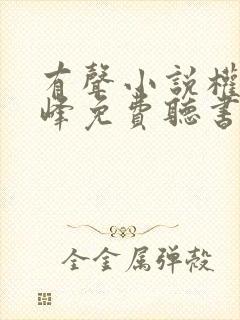 有聲小説權
峰免費聽書
全金属弹殼